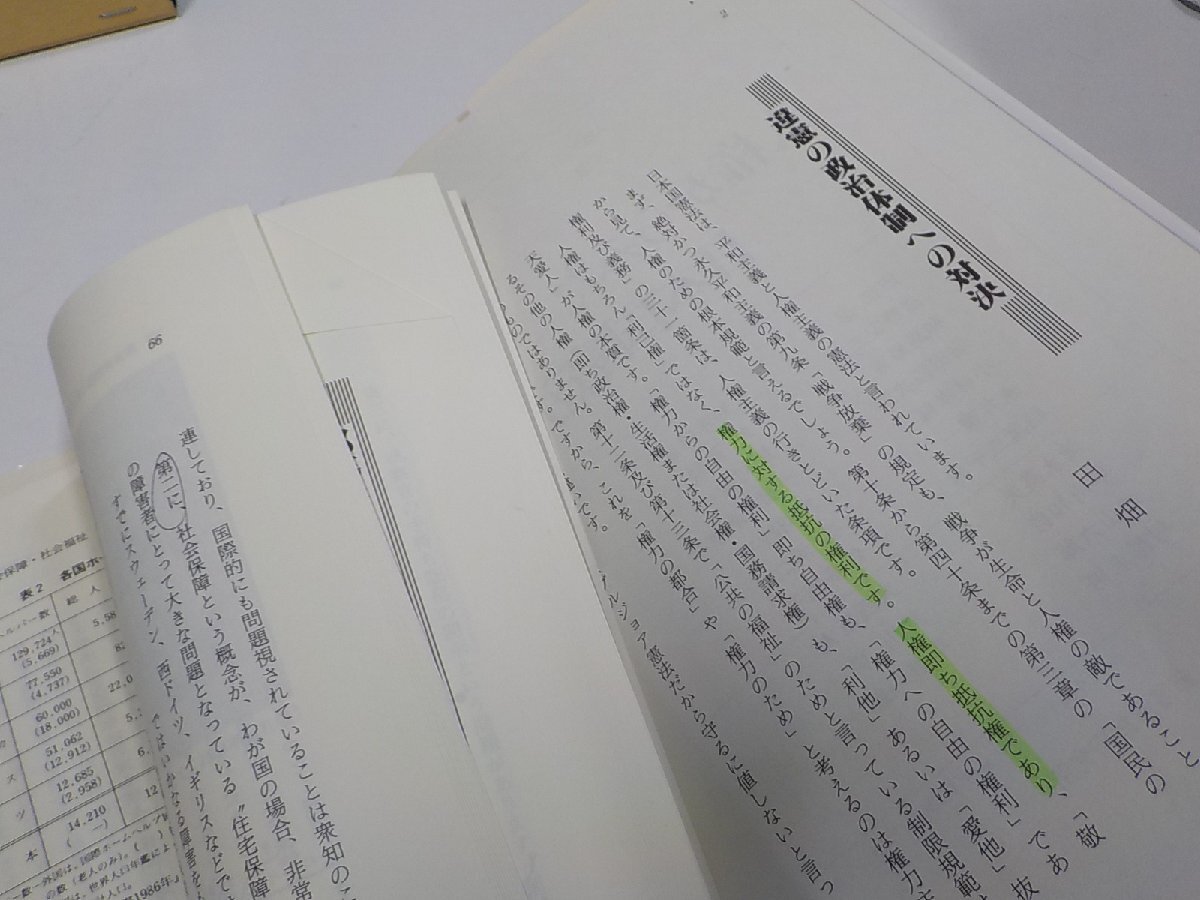 2
違憲の政治体制への対決
田畑
日本国憲法は、平和主義と人権主義の憲法と言われています。戦争が生命と人権の敵であること
から見て、絶対かつ永久平和主義の第九条「戦争放棄」の規定も、
ます。人権のための根本規範と言えるでしょう。第十条から第四十条までの第三章の「国民の
権利及び義務」の三十一箇条は、人権主義の行きとどいた条項です。
人権はもちろん「利己権」ではなく、権力に対する抵抗の権利です。人権即ち抵抗権であり、「敬
天愛人」が人権の本質です。「権力からの自由の権利」即ち自由権も、「権力への自由の権利」であ
るその他の人権(即ち政治権・生活権または社会権・国務請求権)も、「利他」あるいは「愛他」
ものではありません。第十二条及び第十三条で「公共の福祉」のためと言っている制限規範
です。ですから、これを「権力の都合」や「権力のため」と考えるのは権力
ルジョア憲法だから守るに値しないと言っ
66
連しており、国際的にも問題視されていることは衆知のこ
第二に、社会保障という概念が、わが国の場合、非常
の障害者にとって大きな問題となっている“住宅保障
すでにスウェーデン、西ドイツ、イギリスなどで
ではいかなる障害を
保障・社会福祉
表2 各国ホー
ヘルパー数 総人
129,724人 5,58
(5,669)
77,550 82
(4,737)
60,000 22,0
(18,000)
51,062 5,
(12,912)
12,685 6,
(2,958)
14,210 12
(―)
本